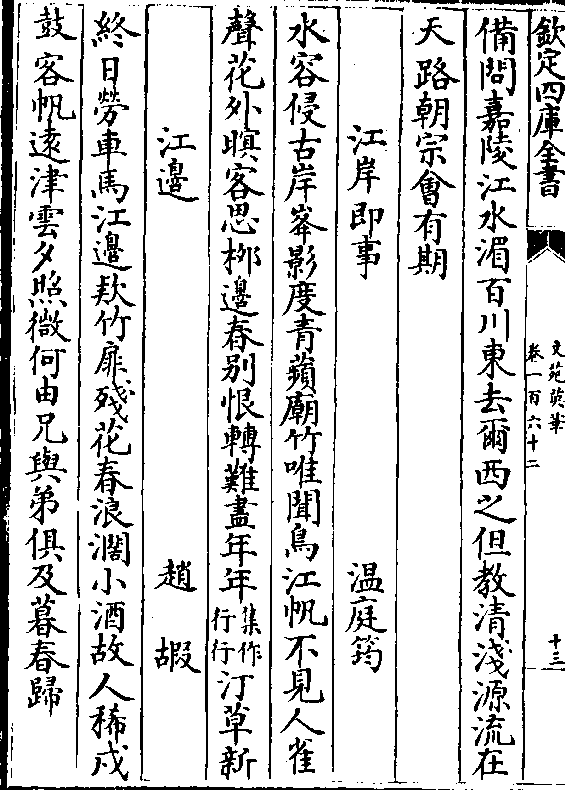 欽定四庫全書
文苑英華
卷一百六十二
十三
備問嘉陵江水湄百川東去爾西之但教清淺源流在
天路朝宗會有期
江岸即事 温庭筠
水容侵古岸峯影度青蘋廟竹唯聞鳥江帆不見人雀
聲花外暝客思栁邊春别恨轉難盡年年集作行行汀草新
江邊 趙嘏
終日勞車馬江邊欵竹扉殘花春浪濶小酒故人稀戍
鼓客帆逺津雲夕照微何由兄與弟俱及暮春歸